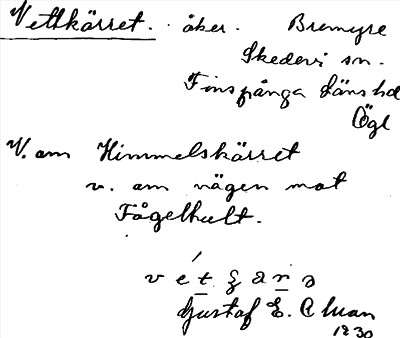 Vettkärret. åker. Bremyre
Skedevi sn.
Finspånga länshd
Ögl
V. om Himmelskärret
v. om vägen mot
Fågelhult.
Gustaf E.
1930